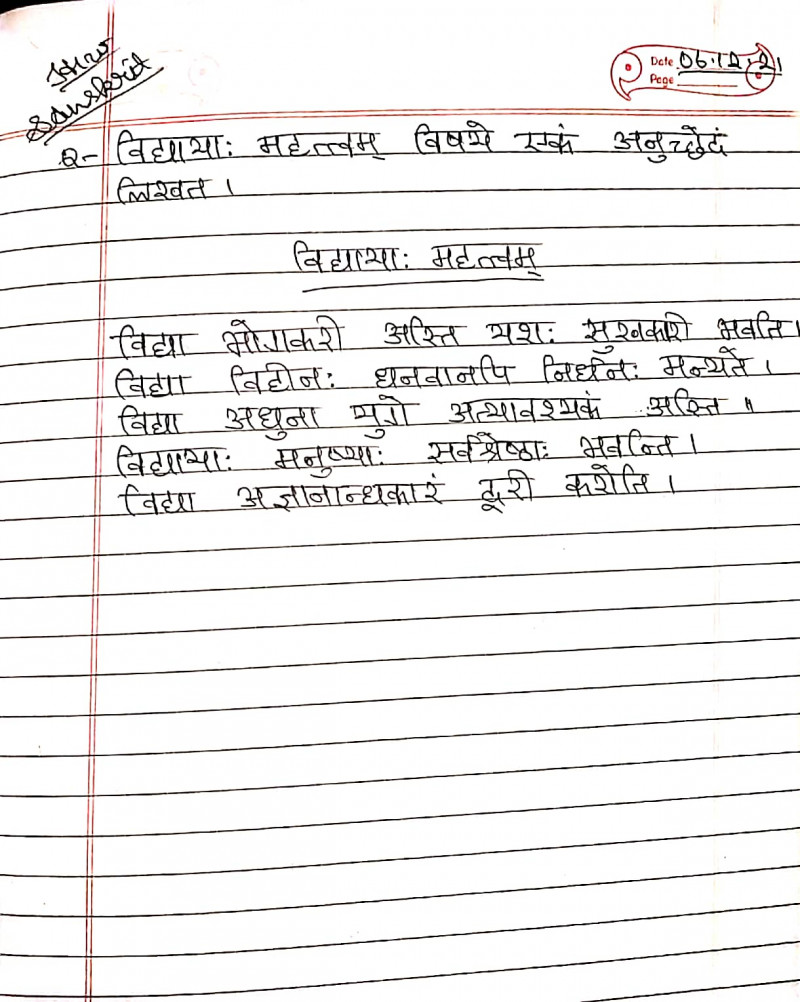 H/W
Sanskrit
Date 06.12.21
Page
Q- विद्यायाः महत्त्वम् विषये एकं अनुच्छेदं
लिखत ।
विद्यायाः महत्त्वम्
विद्या भोगकरी अस्ति यशः सुखकारी भवति ।
विद्या विहीनः धनवानपि निर्धनः मन्यते ।
विद्या अधुना युगे अत्यावश्यकं अस्ति ॥
विद्यायाः मनुष्याः सर्वश्रेष्ठाः भवन्ति ।
विद्या अज्ञानान्धकारं दूरी करोति ।